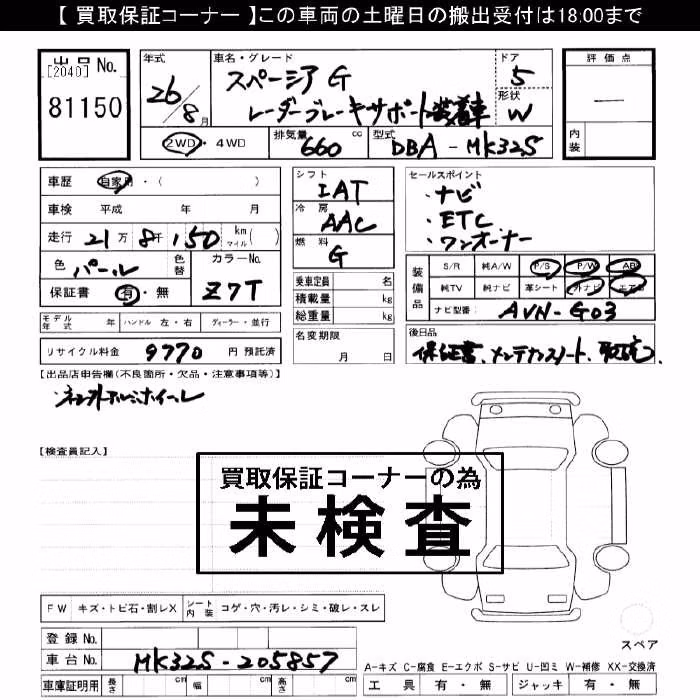 【 買取保証コーナー 】この車両の土曜日の搬出受付は18:00まで
出品 No.
[204D]
81150
年式
26/8月
車名・グレード
スペーシア G
レーダーブレーキサポート装着車
ドア
5
形状
W
評価点
―
内装
2WD・4WD
排気量 660 cc
型式 DBA-MK32S
車歴 自家用・( )
車検 平成 年 月
走行 21万8千150 km マイル ( )
色 パール 色替
カラーNo. Z7T
保証書 有・無
シフト
IAT
冷房
AAC
燃料
G
乗車定員 名
積載量 kg
総重量 kg
セールスポイント
・ナビ
・ETC
・ワンオーナー
装備品
S/R 純A/W P/S P/W AB
純TV 純ナビ 革シート 外ナビ エアB
ナビ型番: AVN-G03
モデル年式 年 ハンドル 左・右 ディーラー・並行
名変期限
月 日
後日品
保証書、メンテナンスノート、取説、
リサイクル料金 9770 円 預託済
【出品店申告欄(不良箇所・欠品・注意事項等)】
・社外アルミホイール
【検査員記入】
買取保証コーナーの為
未検査
FW キズ・トビ石・割レX シート内装 コゲ・穴・汚レ・シミ・破レ・スレ
登録 No.
車台 No. MK32S-205857
車庫証明用 長さ cm 幅 cm 高さ cm
スペア
A-キズ C-腐食 E-エクボ S-サビ U-凹ミ W-補修 XX-交換済
工具 有・無 ジャッキ 有・無